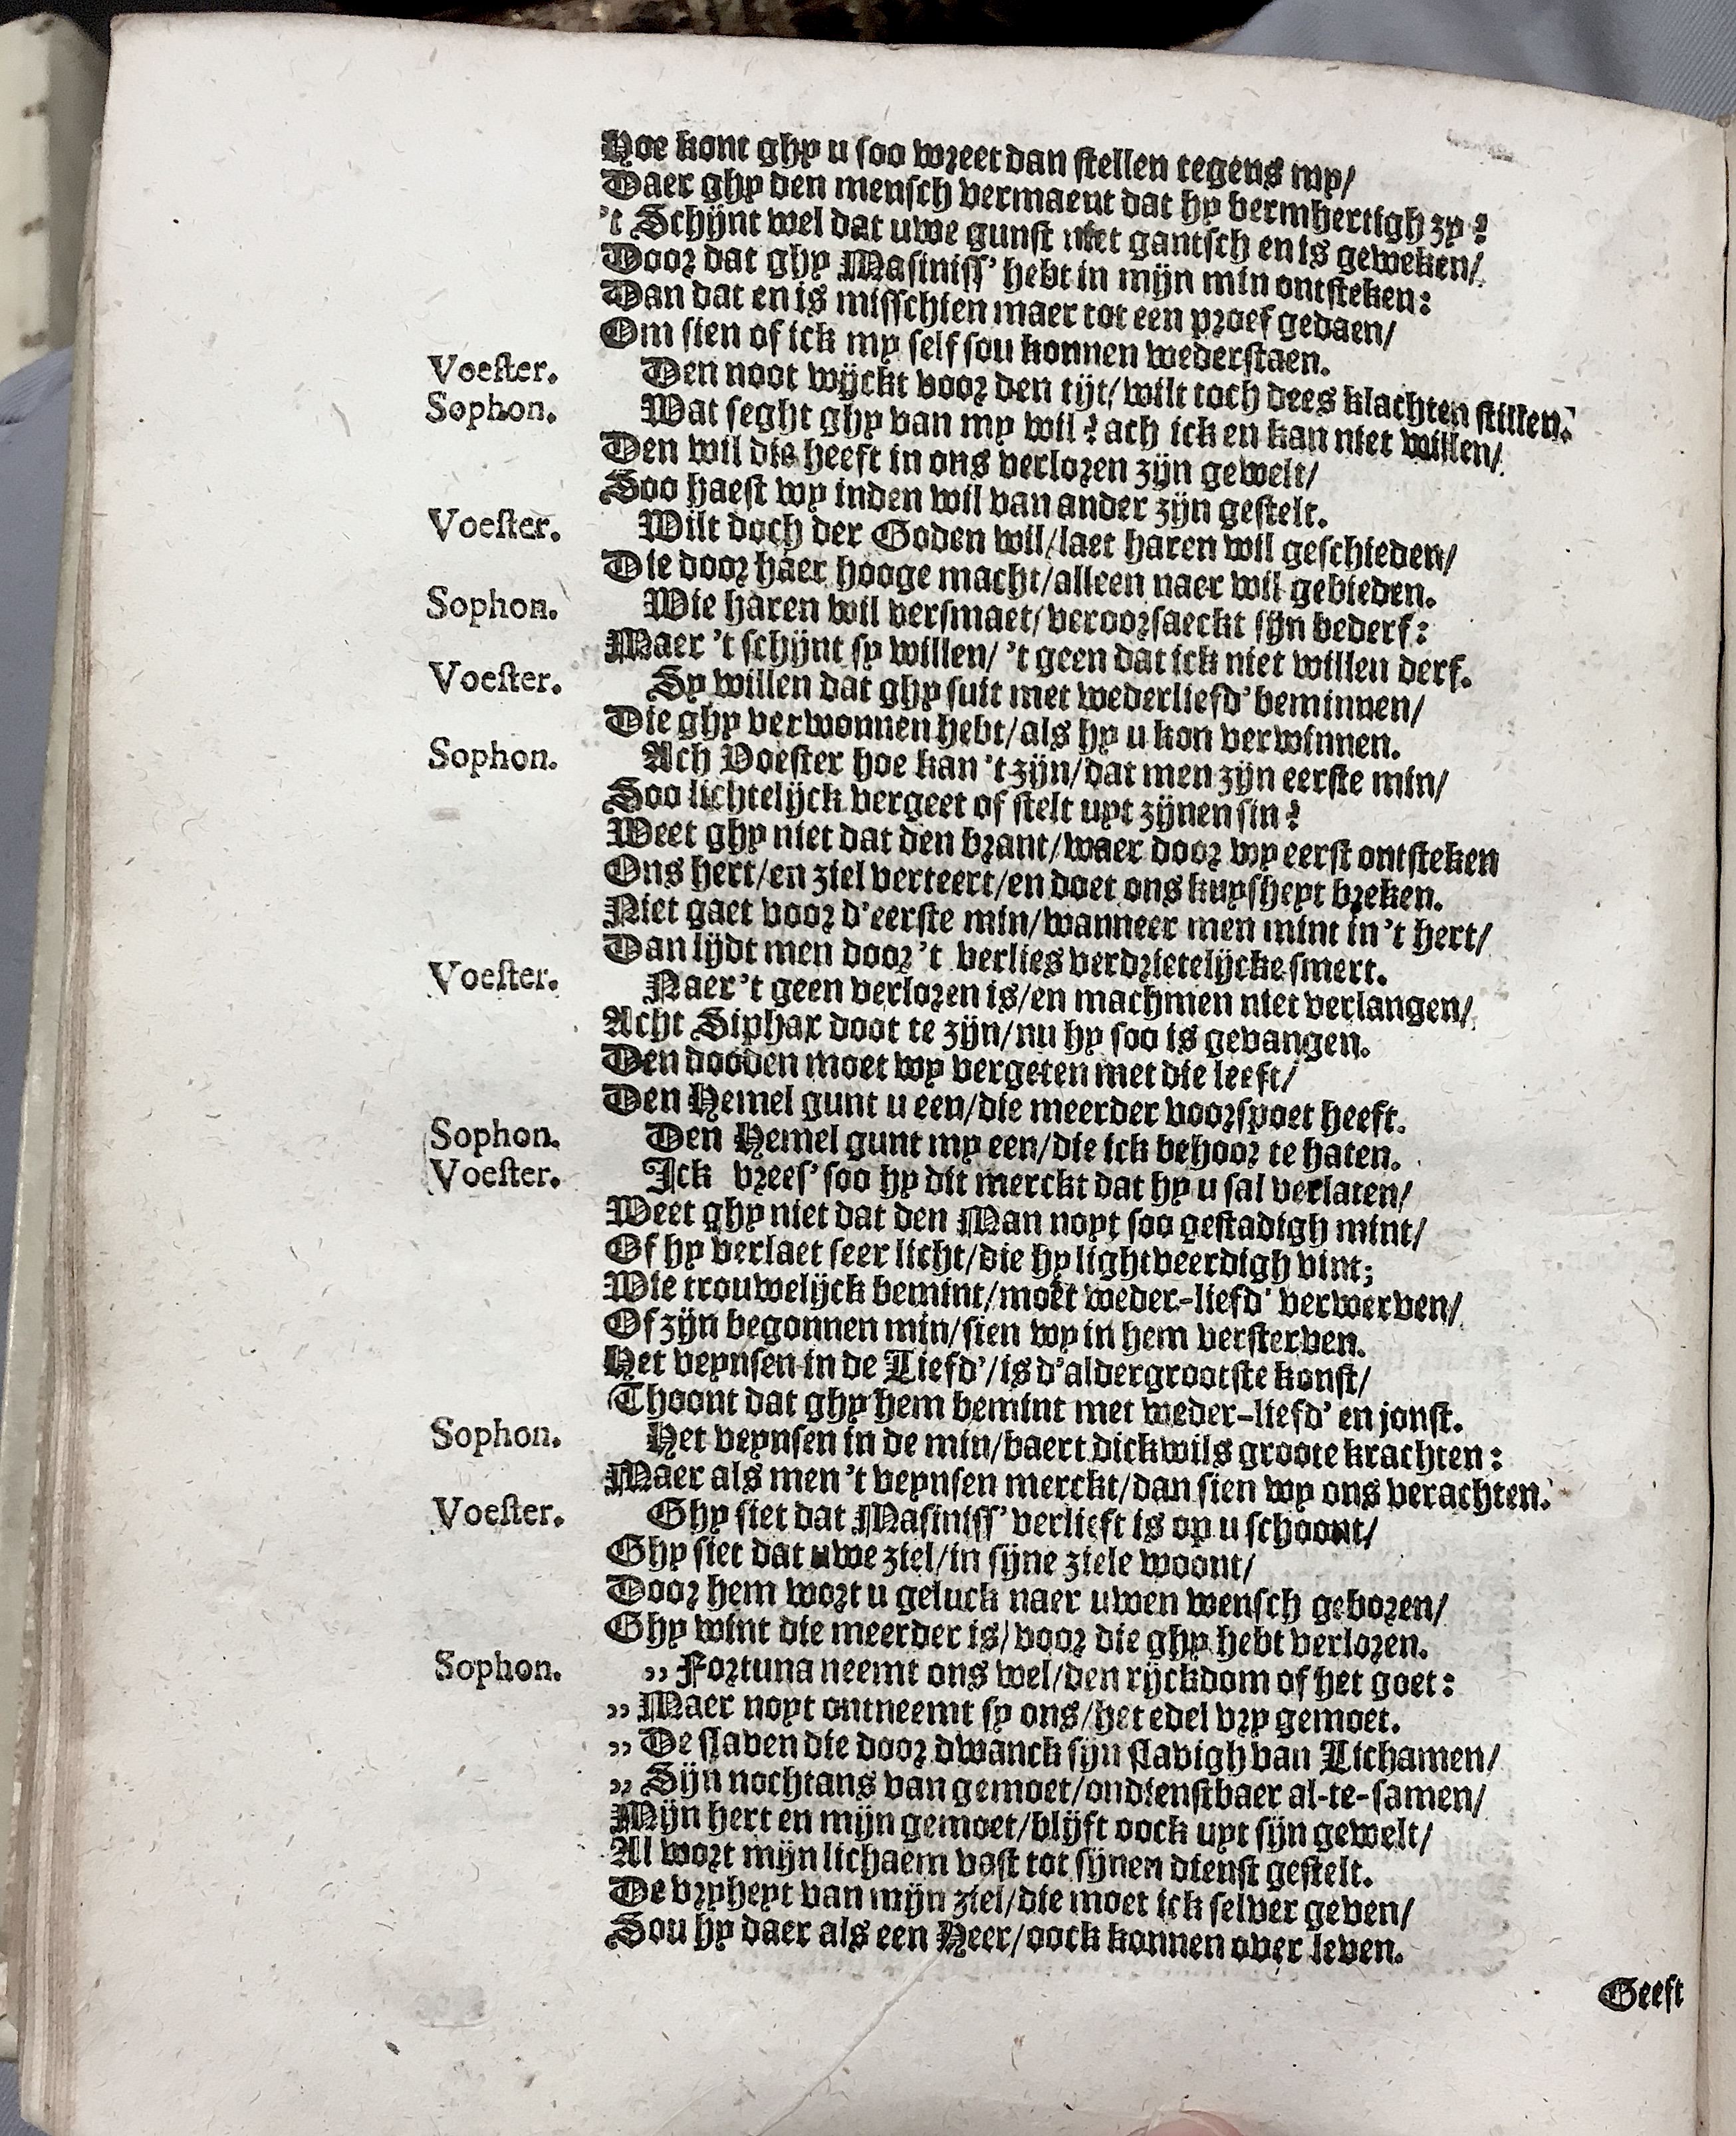 Hoe kont ghy u soo wreet dan stellen tegens my/
Daer ghy den mensch vermaent dat hy bermhertigh zy?
't Schijnt wel dat uwe gunst niet gantsch en is geweken/
Door dat ghy Masiniss' hebt in mijn min ontsteken:
Dan dat en is misschien maer tot een proef gedaen/
Om sien of ick my self sou konnen wederstaen.
Voester. Den noot wijckt voor den tijt/wilt toch dees klachten stillen.
Sophon. Wat seght ghy van my wil? ach ick en kan niet willen/
Den wil die heeft in ons verloren zijn gewelt/
Soo haest wy inden wil van ander zijn gestelt.
Voester. Wilt doch der Goden wil/laet haren wil geschieden/
Die door haer hooge macht/alleen naer wil gebieden.
Sophon. Wie haren wil versmaet/veroorsaeckt sijn bederf:
Maer 't schijnt sy willen/ 't geen dat ick niet willen derf.
Voester. Sy willen dat ghy suit met wederliefd' beminnen/
Die ghy verwonnen hebt/als hy u kon verwinnen.
Sophon. Ach Voester hoe kan 't zijn/dat men zijn eerste min/
Soo lichtelijck vergeet of stelt uyt zijnen sin?
Weet ghy niet dat den brant/waer door wy eerst ontsteken
Ons hert/en ziel verteert/en doet ons kuysheyt breken.
Niet gaet voor d'eerste min/wanneer men mint in 't hert/
Dan lijdt men door 't verlies verdrietelijcke smert.
Voester. Naer 't geen verloren is/en machmen niet verlangen/
Acht Siphax doot te zijn/nu hy soo is gevangen.
Den dooden moet wy vergeten met die leeft/
Den Hemel gunt u een/die meerder voorspoet heeft.
Sophon. Den Hemel gunt my een/die ick behoor te haten.
Voester. Ick vrees' soo hy dit merckt dat hy u sal verlaten/
Weet ghy niet dat den Man noyt soo gestadigh mint/
Of hy verlaet seer licht/die hy lightveerdigh vint;
Wie trouwelijck bemint/moet weder-liefd' verwerven/
Of zijn begonnen min/sien wy in hem versterven.
Het veynsen in de Liefd'/is d'aldergrootste konst/
Thoont dat ghy hem bemint met weder-liefd' en jonst.
Sophon. Het veynsen in de min/baert dickwils groote krachten:
Maer als men 't veynsen merckt/dan sien wy ons verachten.
Voester. Ghy siet dat Masiniss' verlieft is op u schoont/
Ghy siet dat uwe ziel/in sijne ziele woont/
Door hem wort u geluck naer uwen wensch geboren/
Ghy wint die meerder is/voor die ghy hebt verloren.
Sophon. ,, Fortuna neemt ons wel/den rijckdom of het goet:
,, Maer noyt ontneemt sy ons/het edel vry gemoet.
,, De slaven die door dwanck sijn slavigh van Lichamen/
,, Sijn nochtans van gemoet/ondienstbaer al-te-samen/
Mijn hert en mijn gemoet/blijft oock uyt sijn gewelt/
Al wort mijn lichaem vast tot sijnen dienst gestelt.
De vryheyt van mijn ziel/die moet ick selver geven/
Sou hy daer als een Heer/oock konnen over leven.
Geeft